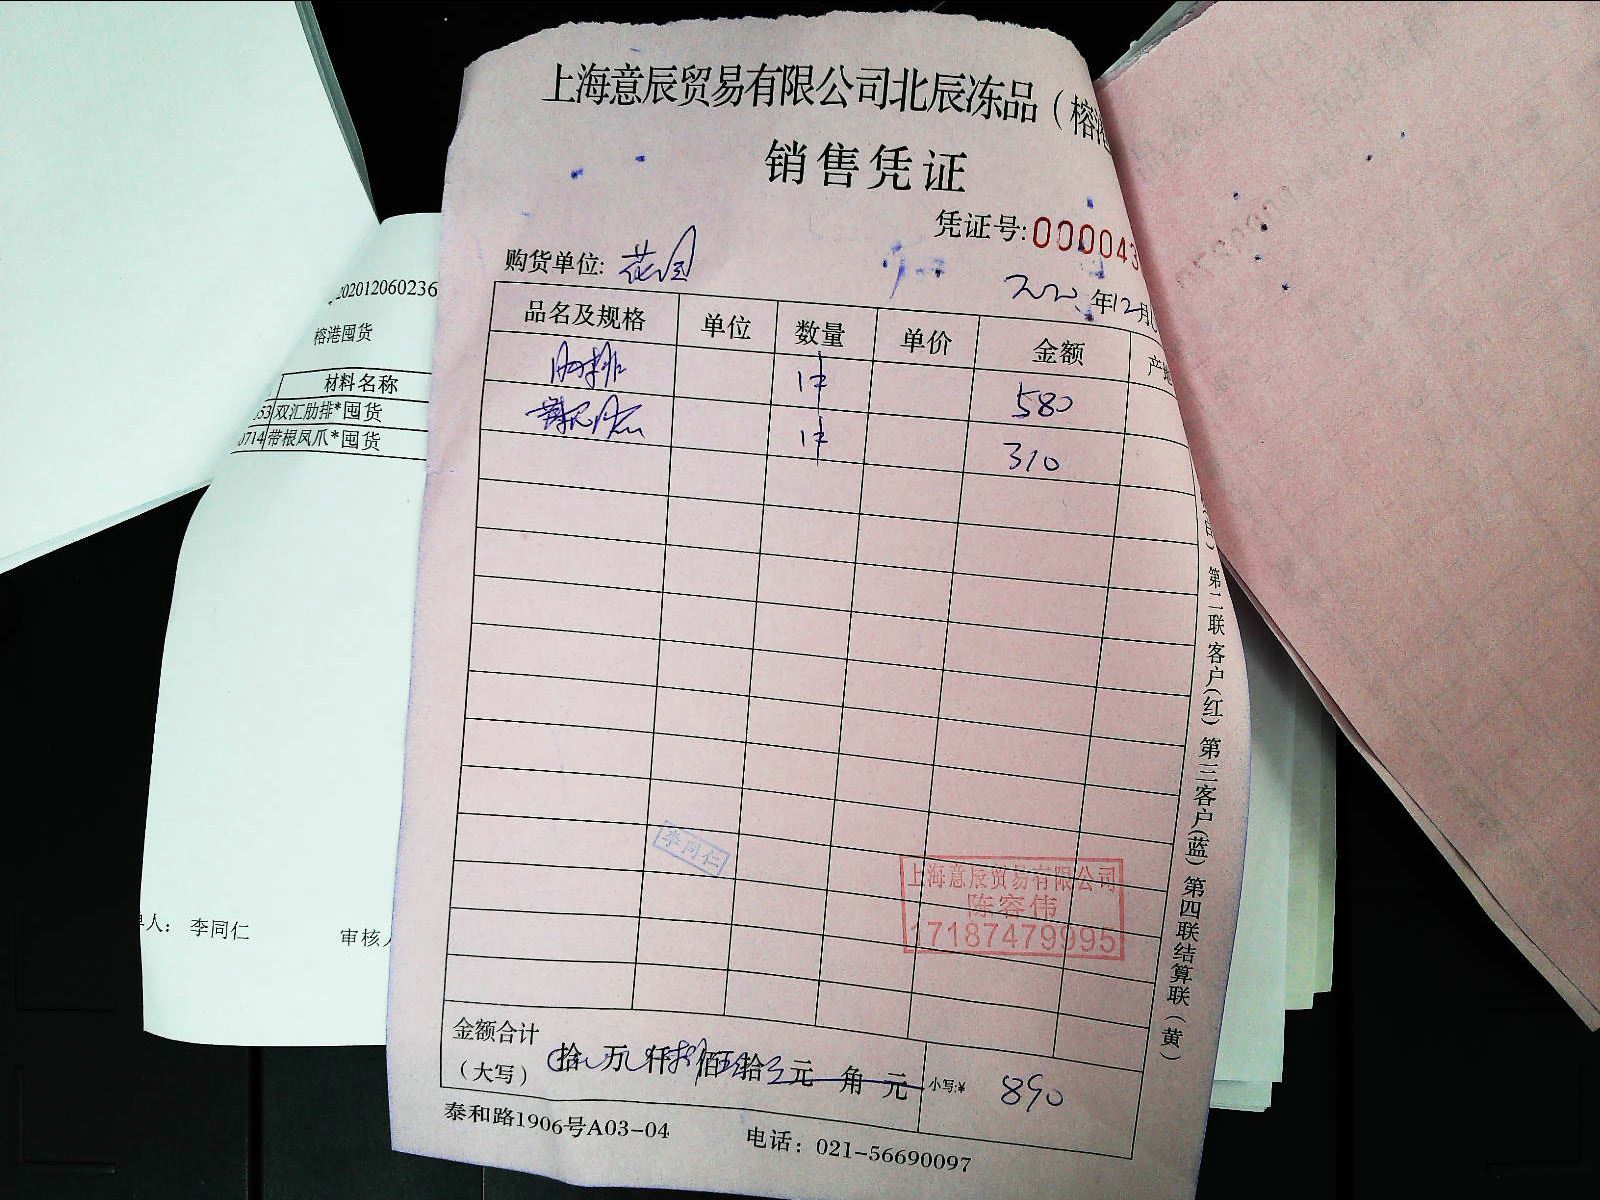 上海意辰贸易有限公司北辰冻品（榕港
销售凭证
凭证号:000043
购货单位: 花园
年12月
品名及规格 单位 数量 单价 金额 产地
肋排 1件 580
1件 310
金额合计
（大写） 拾 万 仟 佰 拾 元 角 元 小写:¥ 890
泰和路1906号A03-04 电话：021-56690097
第二联客户(红) 第三客户(蓝) 第四联结算联(黄)
李同仁
上海意辰贸易有限公司
陈容伟
17187479995
202012060236
榕港囤货
材料名称
53 双汇肋排*囤货
0714 带根凤爪*囤货
单人： 李同仁 审核人